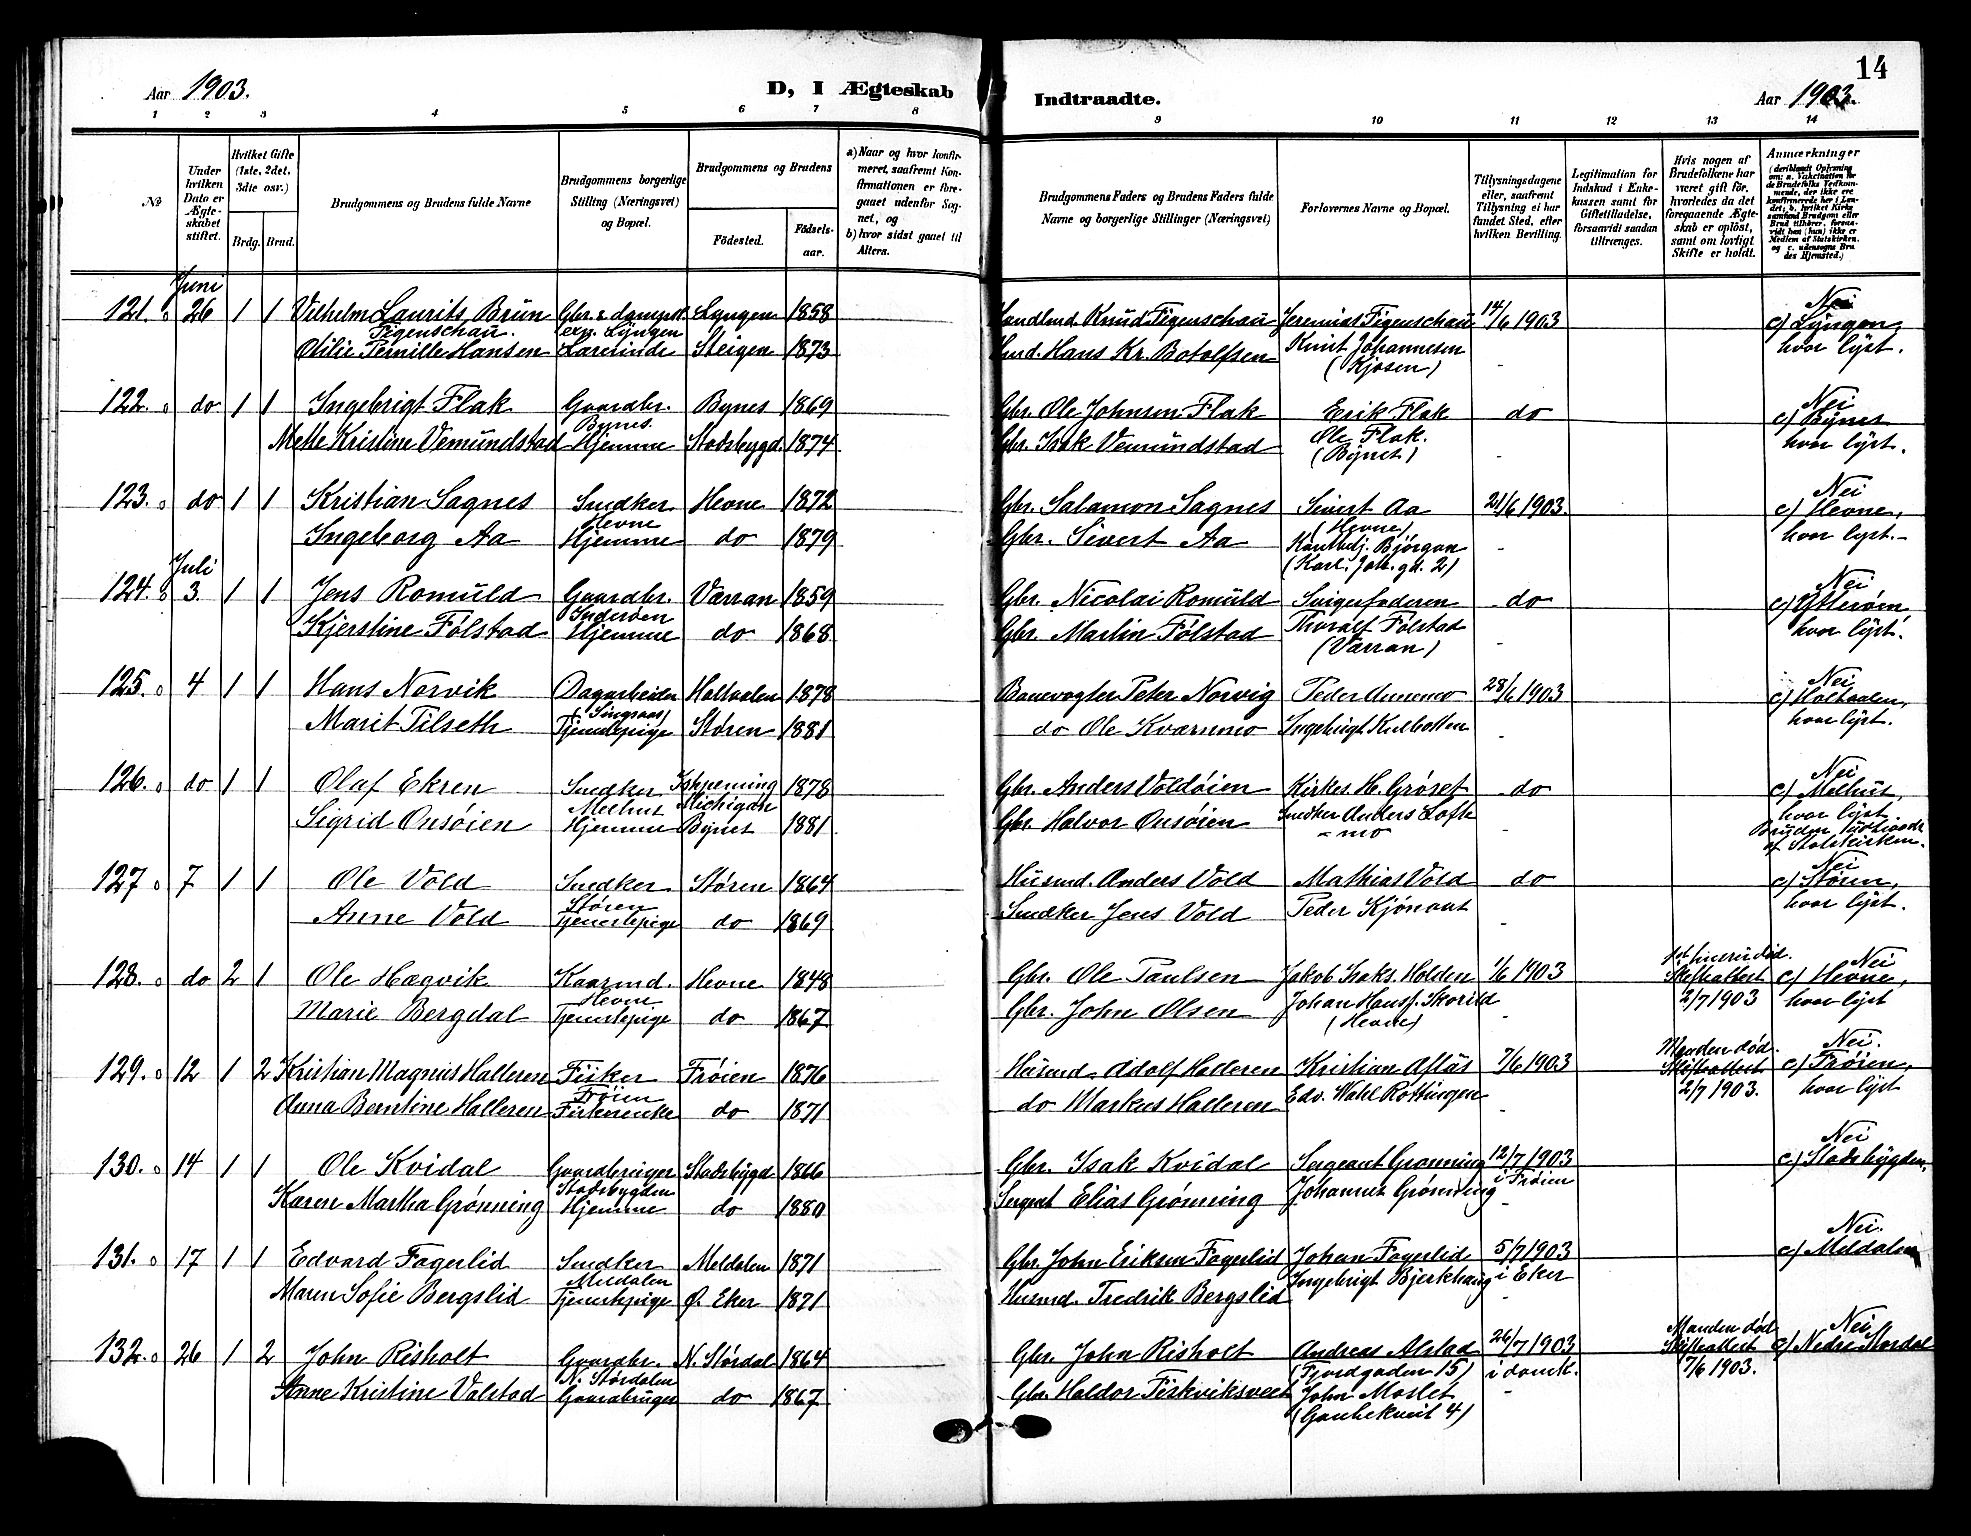 14
Aar 1903.
D, I Ægteskab Indtraadte.
Aar 1903.
1 2 3 4 5 6 7 8 9 10 11 12 13 14
No
Under hvilken Dato er Ægteskabet stiftet.
Hvilket Gifte (1ste, 2det, 3die osv.)
Brdg. Brud.
Brudgommens og Brudens fulde Navne
Brudgommens borgerlige Stilling (Næringsvei) og Bopæl.
Brudgommens og Brudens
Fødested. Fødselsaar.
a) Naar og hvor konfirmeret, saafremt Konfirmationen er foregaaet udenfor Sognet, og
b) hvor sidst gaaet til Alters.
Brudgommens Faders og Brudens Faders fulde Navne og borgerlige Stillinger (Næringsvei)
Forlovernes Navne og Bopæl.
Tillysningsdagene eller, saafremt Tillysning ei har fundet Sted, efter hvilken Bevilling.
Legitimation for Indskud i Enkekassen samt for Giftetilladelse, forsaavidt saadan tiltrænges.
Hvis nogen af Brudefolkene har været gift før, hvorledes da det foregaaende Ægteskab er opløst, samt om lovligt Skifte er holdt.
Anmærkninger
Juni
121. 26 1 1 Vilhelm Laurits Brun Gbr. & dampsk. Lyngen 1858 Handlmd. Knud Figenschau Jeremias Figenschau 14/6 1903 Nei
Figenschau. exp. Lyngen Knut Johannesen c) Lyngen,
Otilie Pernille Hansen Lærerinde Steigen 1873 Hmd. Hans Kr. Botolfsen (Kjosen) - hvor lyst.
122. do 1 1 Ingebrigt Flak Gaardbr. Bynes 1869 Gbr. Ole Johnsen Flak Erik Flak do Nei
Bynes. Ole Flak. c) Bynes
Mette Kristine Vemundstad Hjemme Stadsbygd. 1874 Gbr. Isak Vemundstad (Bynet) - hvor lyst.
123. do 1 1 Kristian Sagnes Snedker Hevne 1872 Gbr. Salamon Sagnes Sivert Aa 21/6 1903. Nei
Hevne (Hevne) c) Hevne,
Ingeborg Aa Hjemme do 1879 Gbr. Sivert Aa Bjørgan - hvor lyst.-
(Karl. Joh. gd. 2)
Juli
124. 3. 1 1 Jens Romuld Gaardbr. Værran 1859 Gbr. Nicolai Romuld Svigerfaderen do Nei
Inderøen Thoralf Følstad c) Ytterøen
Kjerstine Følstad Hjemme do 1868 Gbr. Martin Følstad (Værran) - hvor lyst.
125. 4 1 1 Hans Norvik Dagarbeider Holtaalen 1878 Banevogter Peter Norvig Peder Aunemo 28/6 1903 Nei
(Singsaas) c) Holtaalen,
Marit Tilseth Tjenestepige Støren 1881 do Ole Kværnmo Ingebrigt Kulbotten - hvor lyst.
126. do 1 1 Olaf Ekren Snedker Ishpeming 1878 Gbr. Anders Voldøien Kirkes. H. Grøset do Nei
Melhus Michigan c) Melhus,
Sigrid Onsøien Hjemme Bynet 1881 Gbr. Halvor Onsøien Snedker Anders Lofte - hvor lyst
-mo Bruden udtraadt
af Statskirken.
127. 7 1 1 Ole Vold Snedker Støren 1864 Husmd. Anders Vold Mathias Vold do Nei
Støren c) Støren,
Anne Vold Tjenestepige do 1869 Snedker Jens Vold Peder Kjønaut - hvor lyst.
128. do 2 1 Ole Hægvik Kaarmd. Hevne 1848 Gbr. Ole Paulsen Jakob Isaks. Holden 1/6 1903 død. Nei
Hevne Skifteattest c) Hevne,
Marie Bergdal Tjenestepige do 1867 Gbr. John Olsen Johan Hansf. Skorild - 2/7 1903 hvor lyst
(Hevne)
129. 12 1 2 Kristian Magnus Halleren Fisker Frøien 1876 Husmd. Adolf Halleren Kristian Aflus 7/6 1903 Manden død. Nei.
Frøien Skifteattest c) Frøien,
Anna Berntine Halleren Fiskerenke do 1871 do Markus Halleren Edv. Wahl Røttingen - 2/7 1903. hvor lyst
130. 14 1 1 Ole Kvidal Gaardbruger Stadsbygd 1866 Gbr. Isak Kvidal Sergeant Grønning 12/7 1903 Nei
Stadsbygden i Frøien c) Stadsbygden,
Karen Martha Grønning Hjemme do 1880 Sergent Elias Grønning Johannes Grønning -
131. 17 1 1 Edvard Fagerlid Snedker Meldalen 1871 Gbr. John Eriksen Fagerlid Johan Fagerlid 5/7 1903 Nei.
Meldalen i Eker c) Meldalen
Maren Sofie Bergslid Tjenestepige Ø. Eker 1871 Husmd. Fredrik Bergslid Ingebrigt Bjerkhaug -
132. 26 1 2 John Risholt Gaardbr. N. Størdal 1864 Gbr. John Risholt Andreas Alstad 26/7 1903 Manden død Nei
N. Størdalen (Fjordgaden 15) i domk. Skifteattest c) Nedre Størdal
Anne Kristine Valstad Gaardbruger do 1867 Gbr. Haldor Fiskviksveet John Moslet - 7/6 1903.
(Gaubekveit 4)